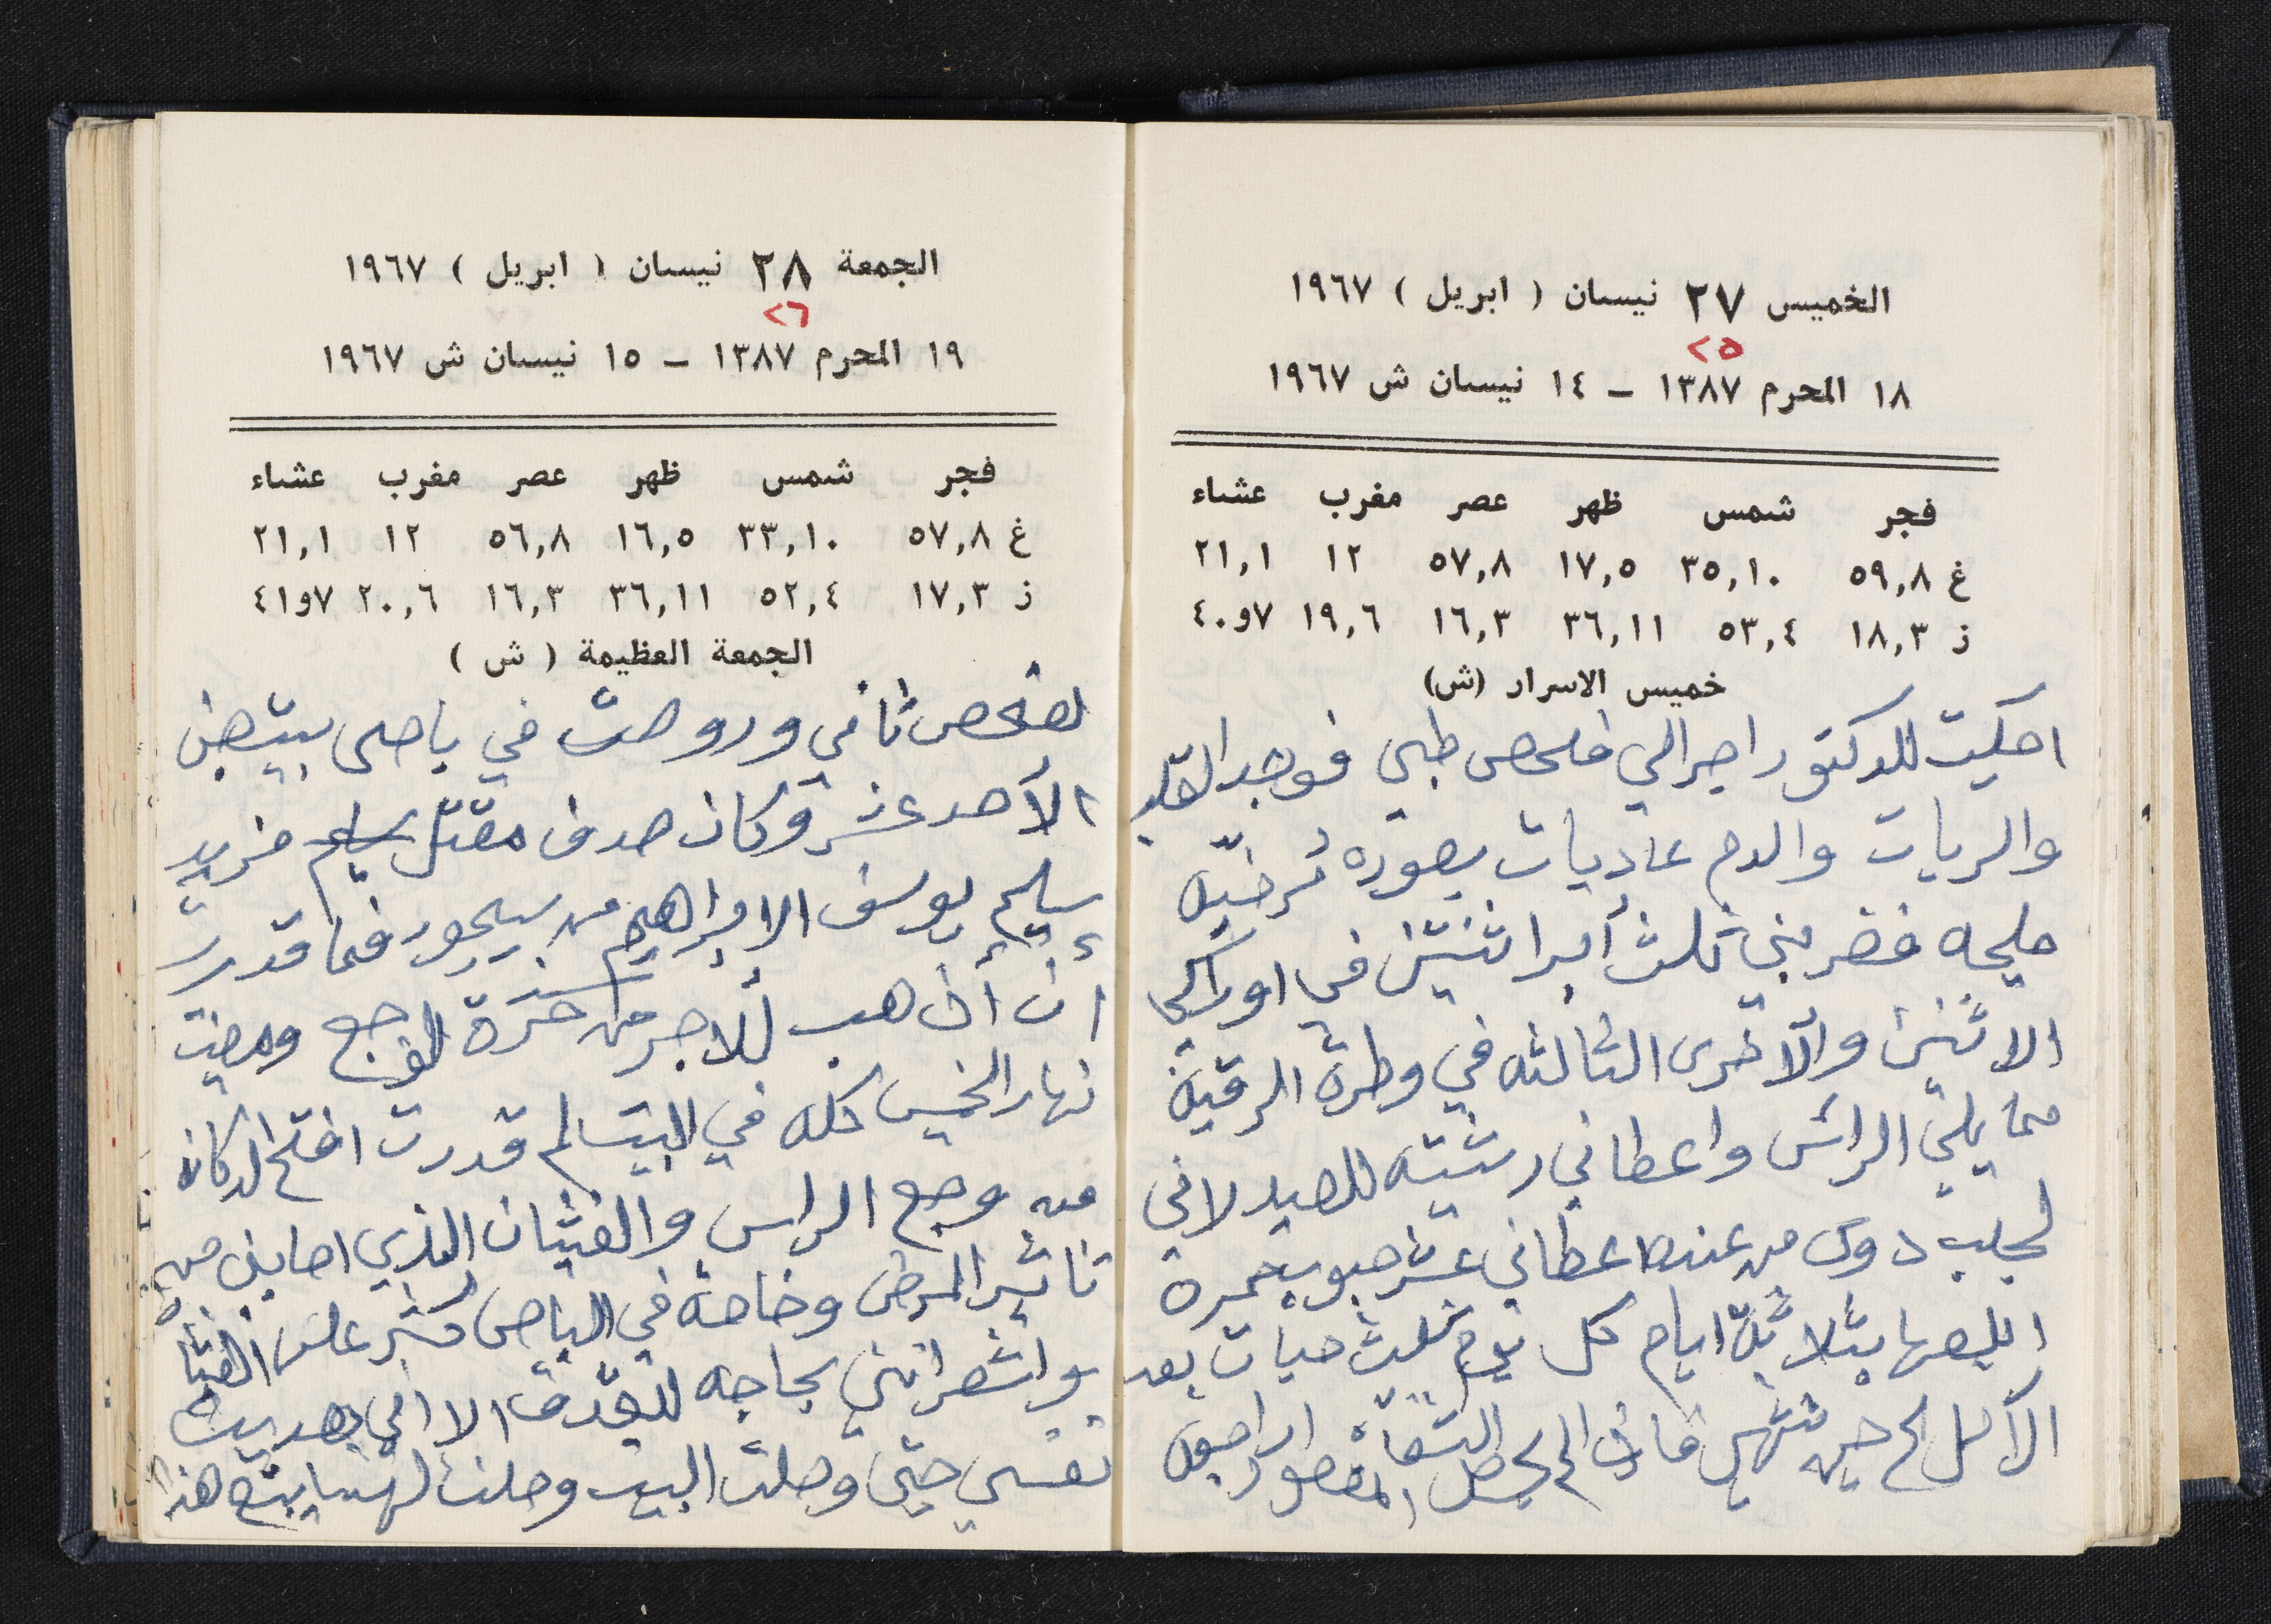 الخميس ٢٧ نيسان ( ابريل ) ١٩٦٧
٢٥
١٨ المحرم ١٣٨٧ - ١٤ نيسان ش ١٩٦٧
فجر شمس ظهر عصر مغرب عشاء
غ ٥٩,٨ ٣٥,١٠ ١٧,٥ ٥٧,٨ ١٢ ٢١,١
ز ١٨,٣ ٥٣,٤ ٣٦,١١ ١٦,٣ ١٩,٦ ٧و٤٠
خميس الاسرار (ش)
احكيت للدكتور اجرالي فحص طبي فوجد القلب
والريات والدم عاديات بصوره مُرضيّه
مليحه فضربني ثلث أبر اثنتين في اوراكي
الاثنين والآخرى الثالثه في وطرة الرقبة
مما يلي الرأس واعطاني رشتيه للصيدلاني
لجلب دوى من عنده اعطاني عشر حبوب حمرة
ابلعها بثلاثة ايام كل يوم ثلث حبات بعد
الآكل لحين تنتهي فاذا لم يحصل الشفاء اراجعه
المقصود
الجمعة ٢٨ نيسان ( ابريل ) ١٩٦٧
٢٦
١٩ المحرم ١٣٨٧ - ١٥ نيسان ش ١٩٦٧
فجر شمس ظهر عصر مغرب عشاء
غ ٥٧,٨ ٣٣,١٠ ١٦,٥ ٥٦,٨ ١٢ ٢١,١
ز ١٧,٣ ٥٢,٤ ٣٦,١١ ١٦,٣ ٢٠,٦ ٧و٤١
الجمعة العظيمة ( ش )
لفحص ثاني وروحت في باص
الأحد عشر وكان صدف مقتل سليم فريد
سليم يوسف الابراهيم من فما قدرت
أن أذهب للأجر من الوجع ومضيت
نهار الخميس كله في البيت لم قدرت افتح الدكان
من وجع الراس والغثيان الذي اصابني من
تاثير المرض وخاصة في الباص كثير على الغثيان
واشعرانني بحاجه الا اني هديت
نفسي حتى وصلت البيت وصلت هذا